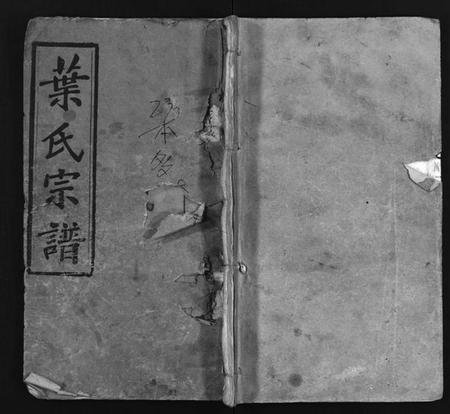 葉氏宗譜
本